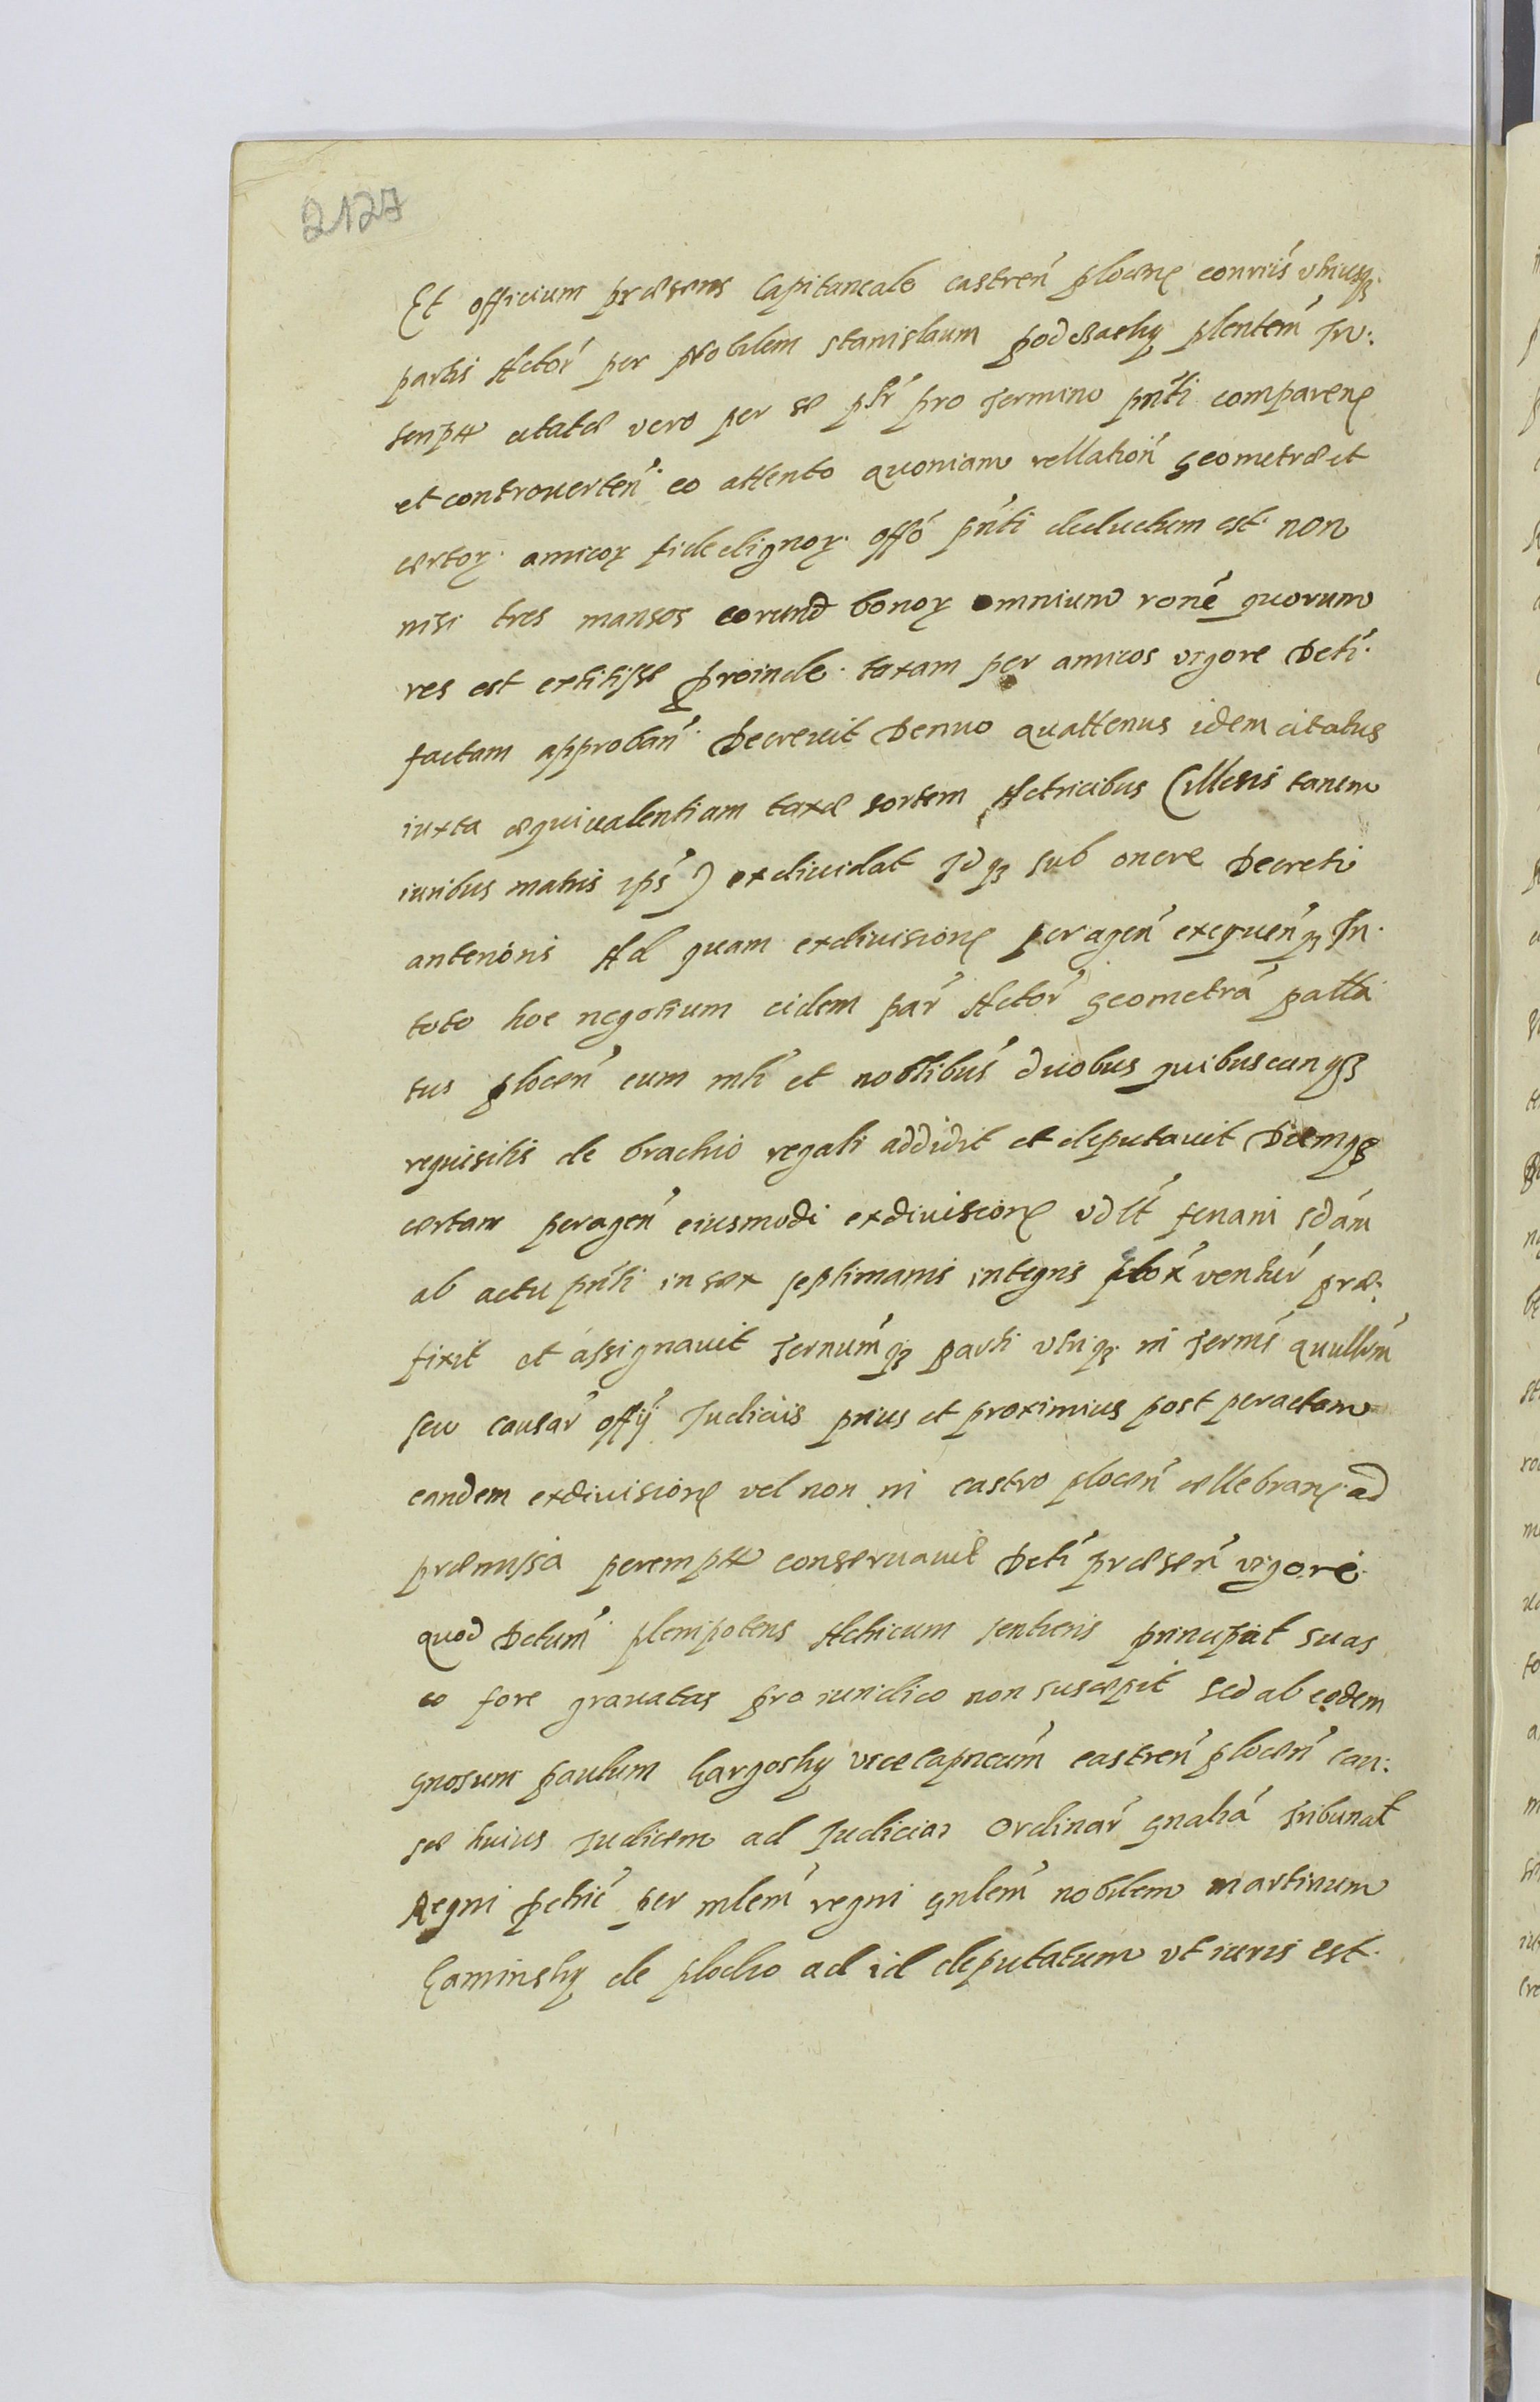 2127
Et officium præsens Capitaneale castren̄ plocen̄ conviis utriusq̄
partis Actor̄ per Nobilem stanislaum podczasky plentem̄ In:
script̄ citatæ vero per se pstr̄ pro termino pn̄ti comparen̄
et controverten̄ eo attento quoniam rellation̄ geometræ et
certor̄ amicor̄ fide dignor̄ offō pn̄ti deductum est non
nisi tres mansos eorund bonor̄ omnium ronē quorum
res est extitisse proinde taxam per amicos vigore Deti
factam approban̄ Decrevit Denuo quattenus idem citatus
iuxta æquivalentiam taxæ sortem Actricibus (illesis tamen
iuribus matris ips̄) exdividat Idq̄ sub onere Decreti
anterioris Ad quam exdivision̄ peragen̄ exequen̄q̄ In
toto hoc negotium eidem par̄ Actor̄ geometrā palla
tus plocen̄ cum mlī et noblibus̄ duobus quibuscunq̄
requisitis de brachio regali addidit et deputavit Diemq̄
certam peragen̄ eiusmodi exdivision̄ vdlt̄ feriam sdam̄
ab actu pn̄ti in sex septimanis integris plox̄ ventur̄ præ:
fixit et assignavit Ternum̄q̄ parti utriq̄ in Termis̄ qurllum̄
seu causar̄ offy Iudiciis prius et proximius post peractam
eandem exdivision̄ vel non in castro plocen̄ cellebran̄ ad
præmissa perempt̄ conservavit Deti præsen̄ vigore
quod Detum̄ plenipotens Actricum sentiens principal suas
eo fore gravatas pro iuridico non suscepit sed ab eodem
gnosum paulum Gargosky vicecapneum̄ castren̄ plocen̄ cau:
sæ huius Iudicem ad Iudicia Ordinar̄ gnalia Tribunal
Regni petric̄ per mlem̄ regni gnlem̄ nobilem martinum
Kaminsky de plocko ad id deputatum ut iuris est.